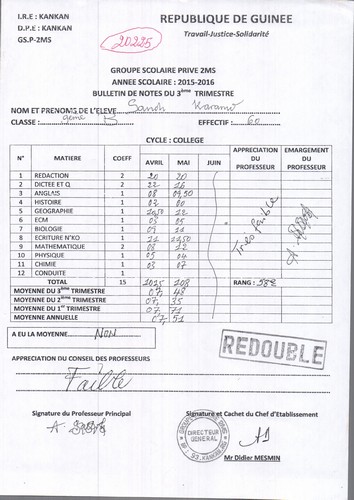 I.R.E : KANKAN
D.P.E : KANKAN
GS.P-2MS
20225
REPUBLIQUE DE GUINEE
Travail-Justice-Solidarité
GROUPE SCOLAIRE PRIVE 2MS
ANNEE SCOLAIRE : 2015-2016
BULLETIN DE NOTES DU 3ème TRIMESTRE
NOM ET PRENOMS DE L'ELEVE Sanoh Karamo
CLASSE : 9ème B EFFECTIF : 60
CYCLE : COLLEGE
N° MATIERE COEFF AVRIL MAI JUIN APPRECIATION DU PROFESSEUR EMARGEMENT DU PROFESSEUR
1 REDACTION 2 20 20
2 DICTEE ET Q 2 22 16
3 ANGLAIS 1 08 09,50
4 HISTOIRE 1 03 00
5 GEOGRAPHIE 1 10,50 12
6 ECM 1 03 05
7 BIOLOGIE 1 09 11
8 ECRITURE N'KO 1 11 11,50
9 MATHEMATIQUE 2 08 12
10 PHYSIQUE 1 05 04
11 CHIMIE 1 03 07
12 CONDUITE 1
Très faible
TOTAL 15 108 RANG : 58è
MOYENNE DU 3ème TRIMESTRE 07, 48
MOYENNE DU 2ème TRIMESTRE 07, 35
MOYENNE DU 1er TRIMESTRE 07, 71
MOYENNE ANNUELLE 07, 51
A EU LA MOYENNE NON
REDOUBLE
APPRECIATION DU CONSEIL DES PROFESSEURS
Faible
Signature du Professeur Principal
Signature et Cachet du Chef d'Etablissement
DIRECTEUR
GENERAL
Mr Didier MESMIN